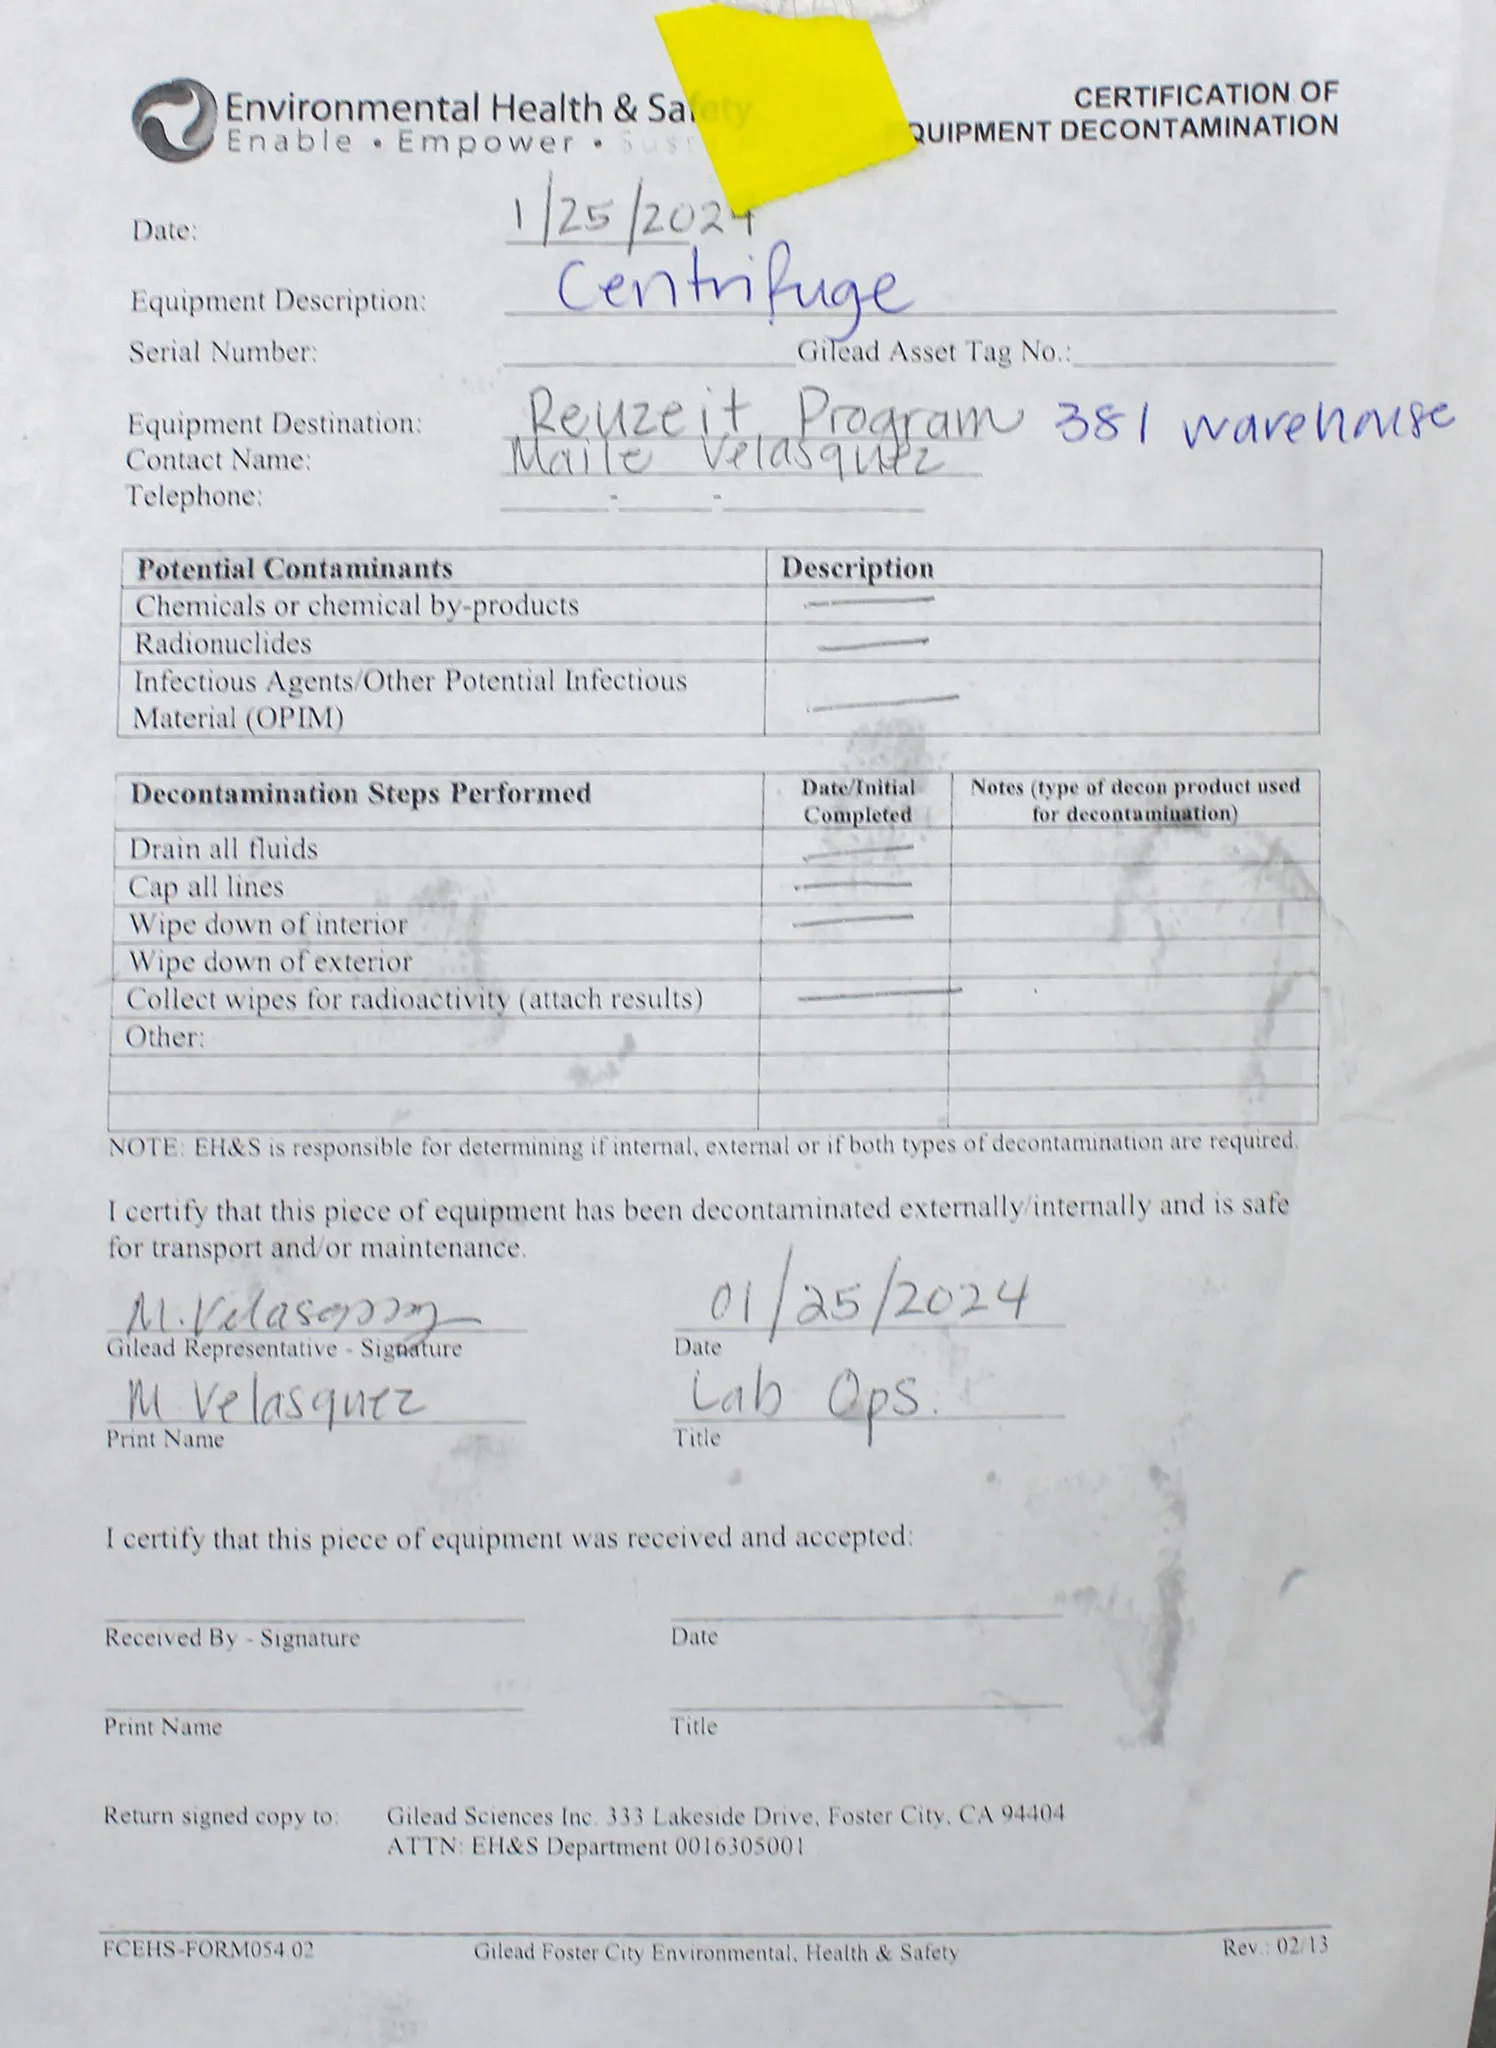 Environmental Health & Safety
Enable • Empower •
CERTIFICATION OF
QUIPMENT DECONTAMINATION
Date: 1/25/2024
Equipment Description: Centrifuge
Serial Number: Gilead Asset Tag No.:
Equipment Destination: Reuzeit Program 381 warehouse
Contact Name: Maile Velasquez
Telephone: - -
Potential Contaminants Description
Chemicals or chemical by-products
Radionuclides
Infectious Agents/Other Potential Infectious
Material (OPIM)
Decontamination Steps Performed Date/Initial Completed Notes (type of decon product used for decontamination)
Drain all fluids
Cap all lines
Wipe down of interior
Wipe down of exterior
Collect wipes for radioactivity (attach results)
Other:
NOTE: EH&S is responsible for determining if internal, external or if both types of decontamination are required.
I certify that this piece of equipment has been decontaminated externally/internally and is safe
for transport and/or maintenance.
M. Velasquez 01/25/2024
Gilead Representative - Signature Date
M Velasquez Lab Ops.
Print Name Title
I certify that this piece of equipment was received and accepted:
Received By - Signature Date
Print Name Title
Return signed copy to: Gilead Sciences Inc. 333 Lakeside Drive, Foster City, CA 94404
ATTN: EH&S Department 0016305001
FCEHS-FORM054.02 Gilead Foster City Environmental, Health & Safety Rev.: 02/13